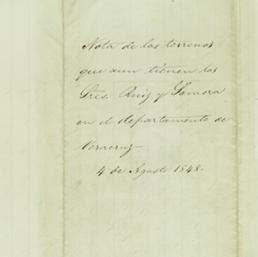 Nota de los terrenos
que aun tienen los
Sres. Ruiz y Zamora
en el departamento de
Veracruz—
4 de Agosto 1848.